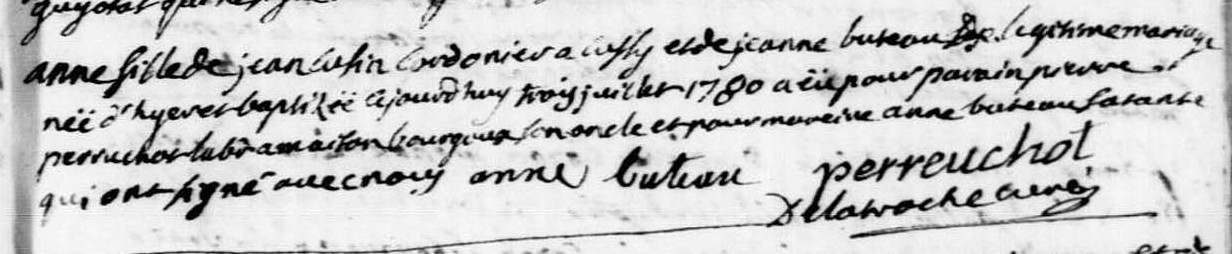 anne fille de jean cusin cordonier a cussy et de jeanne buteau legitime mariage
née d'hyer et baptizéé cejourdhuy trois juillet 1780 a eü pour parain pierre
perruchot son oncle et pour mareine anne buteau sa tante
qui ont signé avec nous anne buteau perreuchot
Delaroche curé